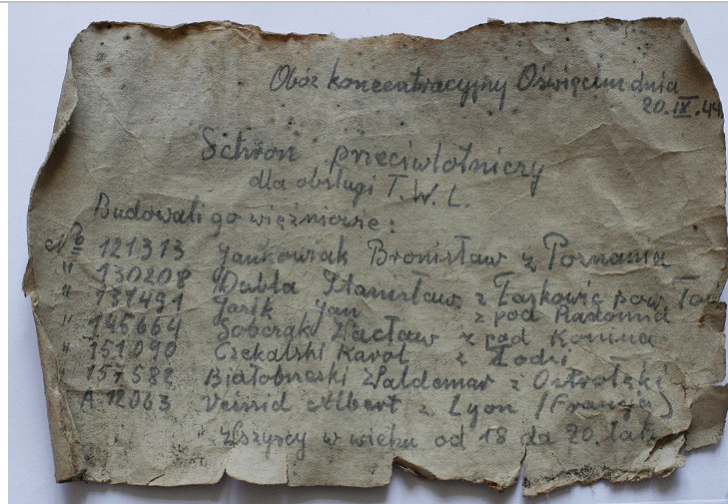 Obóz koncentracyjny Oświęcim dnia
20.IX.44
Schron przeciwlotniczy
dla obsługi T.W.L.
Budowali go więźniowie:
No 121313 Jankowiak Bronisław z Poznania
" 130208 Dubla Stanisław z Łaskowic pow. Tar
" 131491 Jasik Jan z pod Radomia
" 145664 Sobczak Wacław z pod Konina
" 151090 Czekalski Karol z Łodzi
" 157582 Białobrzeski Waldemar z Ostrołęki
A 12063 Veissid Albert z Lyon (Francja)
Wszyscy w wieku od 18 da 20. lat.